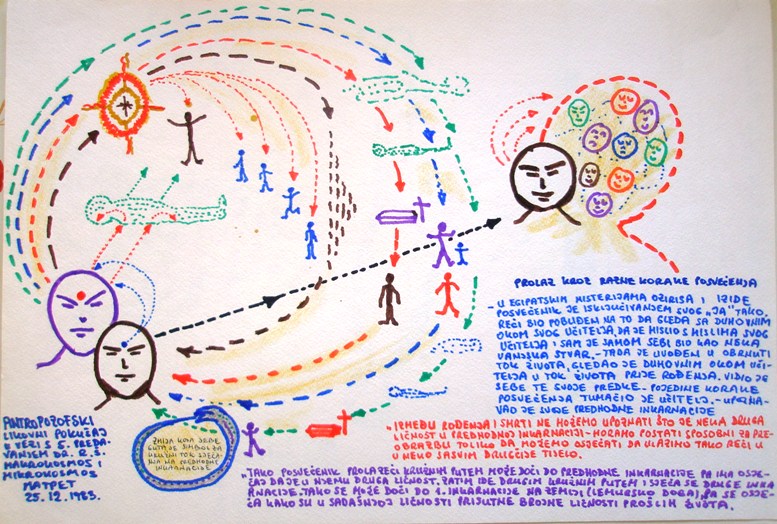 PROLAZ KROZ RAZNE KORAKE POSVEĆENJA
- U EGIPATSKIM MISTERIJAMA OZIRISA I IZIDE
POSVEĆENIK JE ISKLJUČIVANJEM SVOG "JA" TAKO
REĆI BIO POBUĐEN NA TO DA GLEDA SA DUHOVNIM
OKOM SVOG UČITELJA, DA JE MISLIO S MISLIMA SVOG
UČITELJA I SAM JE SAMOM SEBI BIO KAO NEKA
VANJSKA STVAR. - TADA JE UVOĐEN U OBRNUTI
TOK ŽIVOTA, GLEDAO JE DUHOVNIM OKOM UČI-
TELJA U TOK ŽIVOTA PRIJE ROĐENJA. VIDIO JE
SEBE TE SVOJE PREDKE. - POJEDINE KORAKE
POSVEĆENJA TUMAČIO JE UČITELJ. - UPOZNA-
VAO JE SVOJE PREDHODNE INKARNACIJE
- "IZMEĐU ROĐENJA I SMRTI NE MOŽEMO UPOZNATI ŠTO JE NEKA DRUGA
LIČNOST U PREDHODNOJ INKARNACIJI - MORAMO POSTATI SPOSOBNI ZA PRE-
OBRAZBU TOLIKO DA MOŽEMO OSJEĆATI DA ULAZIMO TAKO REĆI U
U NEKO SASVIM DRUGČIJE TIJELO.
- "TAKO POSVEĆENIK PROLAZEĆI KRUŽNIM PUTEM MOŽE DOĆI DO PREDHODNE INKARNACIJE PA IMA OSJE-
ĆAJ DA JE U NJEMU DRUGA LIČNOST. ZATIM IDE DRUGIM KRUŽNIM PUTEM I SJEĆA SE DRUGE INKAR
NACIJE. TAKO SE MOŽE DOĆI DO 1. INKARNACIJE NA ZEMLJI (LEMURSKO DOBA), PA SE OSJE-
ĆA KAKO SU U SADAŠNJOJ LIČNOSTI PRISUTNE BROJNE LIČNOSTI PROŠLIH ŽIVOTA.
ANTROPOZOFSKI
LIKOVNI POKUŠAJ
U VEZI S 5. PREDA-
VANJEM DR. R. Š.
MAKROKOSMOS I
MIKROKOSMOS
MATPET
25.12.1983.
ZMIJA KOJA JEDE
JE SIMBOL ZA
NA PREDHODNE
INKARNACIJE